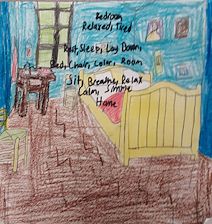 Bedroom
Relaxed, Tired
Rest, Sleep, Lay Down,
Bed, Chair, Color, Room
Sit, Breathe, Relax
Calm, Simple
Home